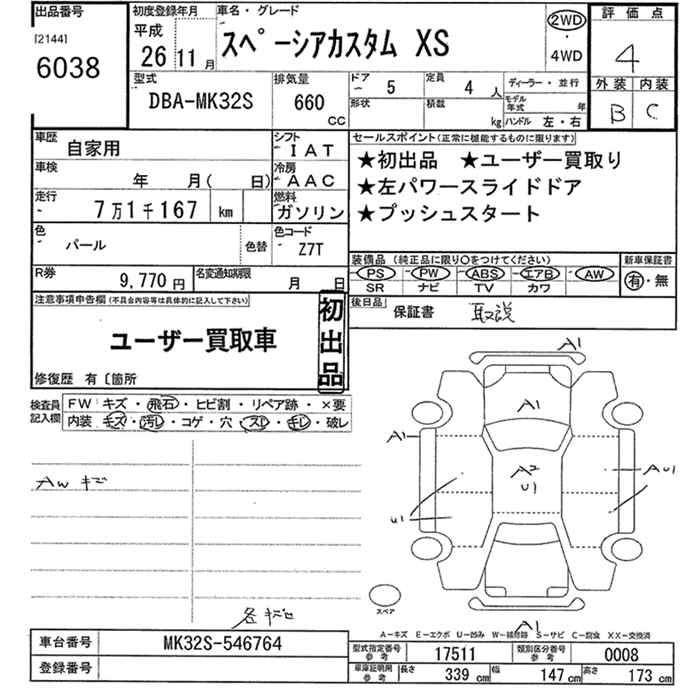 出品番号
[2144]
6038
初度登録年月
平成
26 11月
車名・グレード
スペーシアカスタム XS
2WD
・
4WD
評価点
4
外装 内装
B C
型式
DBA-MK32S
排気量
660
CC
ドア
5
定員
4人
形状
積載
kg
ディーラー・並行
モデル年式 年
ハンドル 左・右
車歴
自家用
シフト
IAT
車検
年 月( 日)
冷房
AAC
走行
7万1千167 km
燃料
ガソリン
色
パール
色替
色コード
Z7T
R券
9,770円
名変通知期限
月 日
セールスポイント(正常に機能するものに限ります)
★初出品 ★ユーザー買取り
★左パワースライドドア
★プッシュスタート
装備品(純正品に限り〇をつけてください)
PS PW ABS エアB AW
SR ナビ TV カワ
新車保証書
有・無
後日品
保証書 取説
注意事項申告欄(不具合内容等は具体的に記入して下さい)
ユーザー買取車
初出品
修復歴 有〔箇所
検査員記入欄
FW キズ・飛石・ヒビ割・リペア跡・×要
内装 キズ・汚レ・コゲ・穴・スレ・キレ・破レ
Aw キズ
各キズ
A1
A1
A1
A2
U1
AU1
U1
A1
スペア
A-キズ E-エクボ U-凹み W-補修跡 S-サビ C-腐食 XX-交換済
車台番号
MK32S-546764
登録番号
型式指定番号参考
17511
類別区分番号参考
0008
車庫証明用参考
長さ 339 cm 幅 147 cm 高さ 173 cm